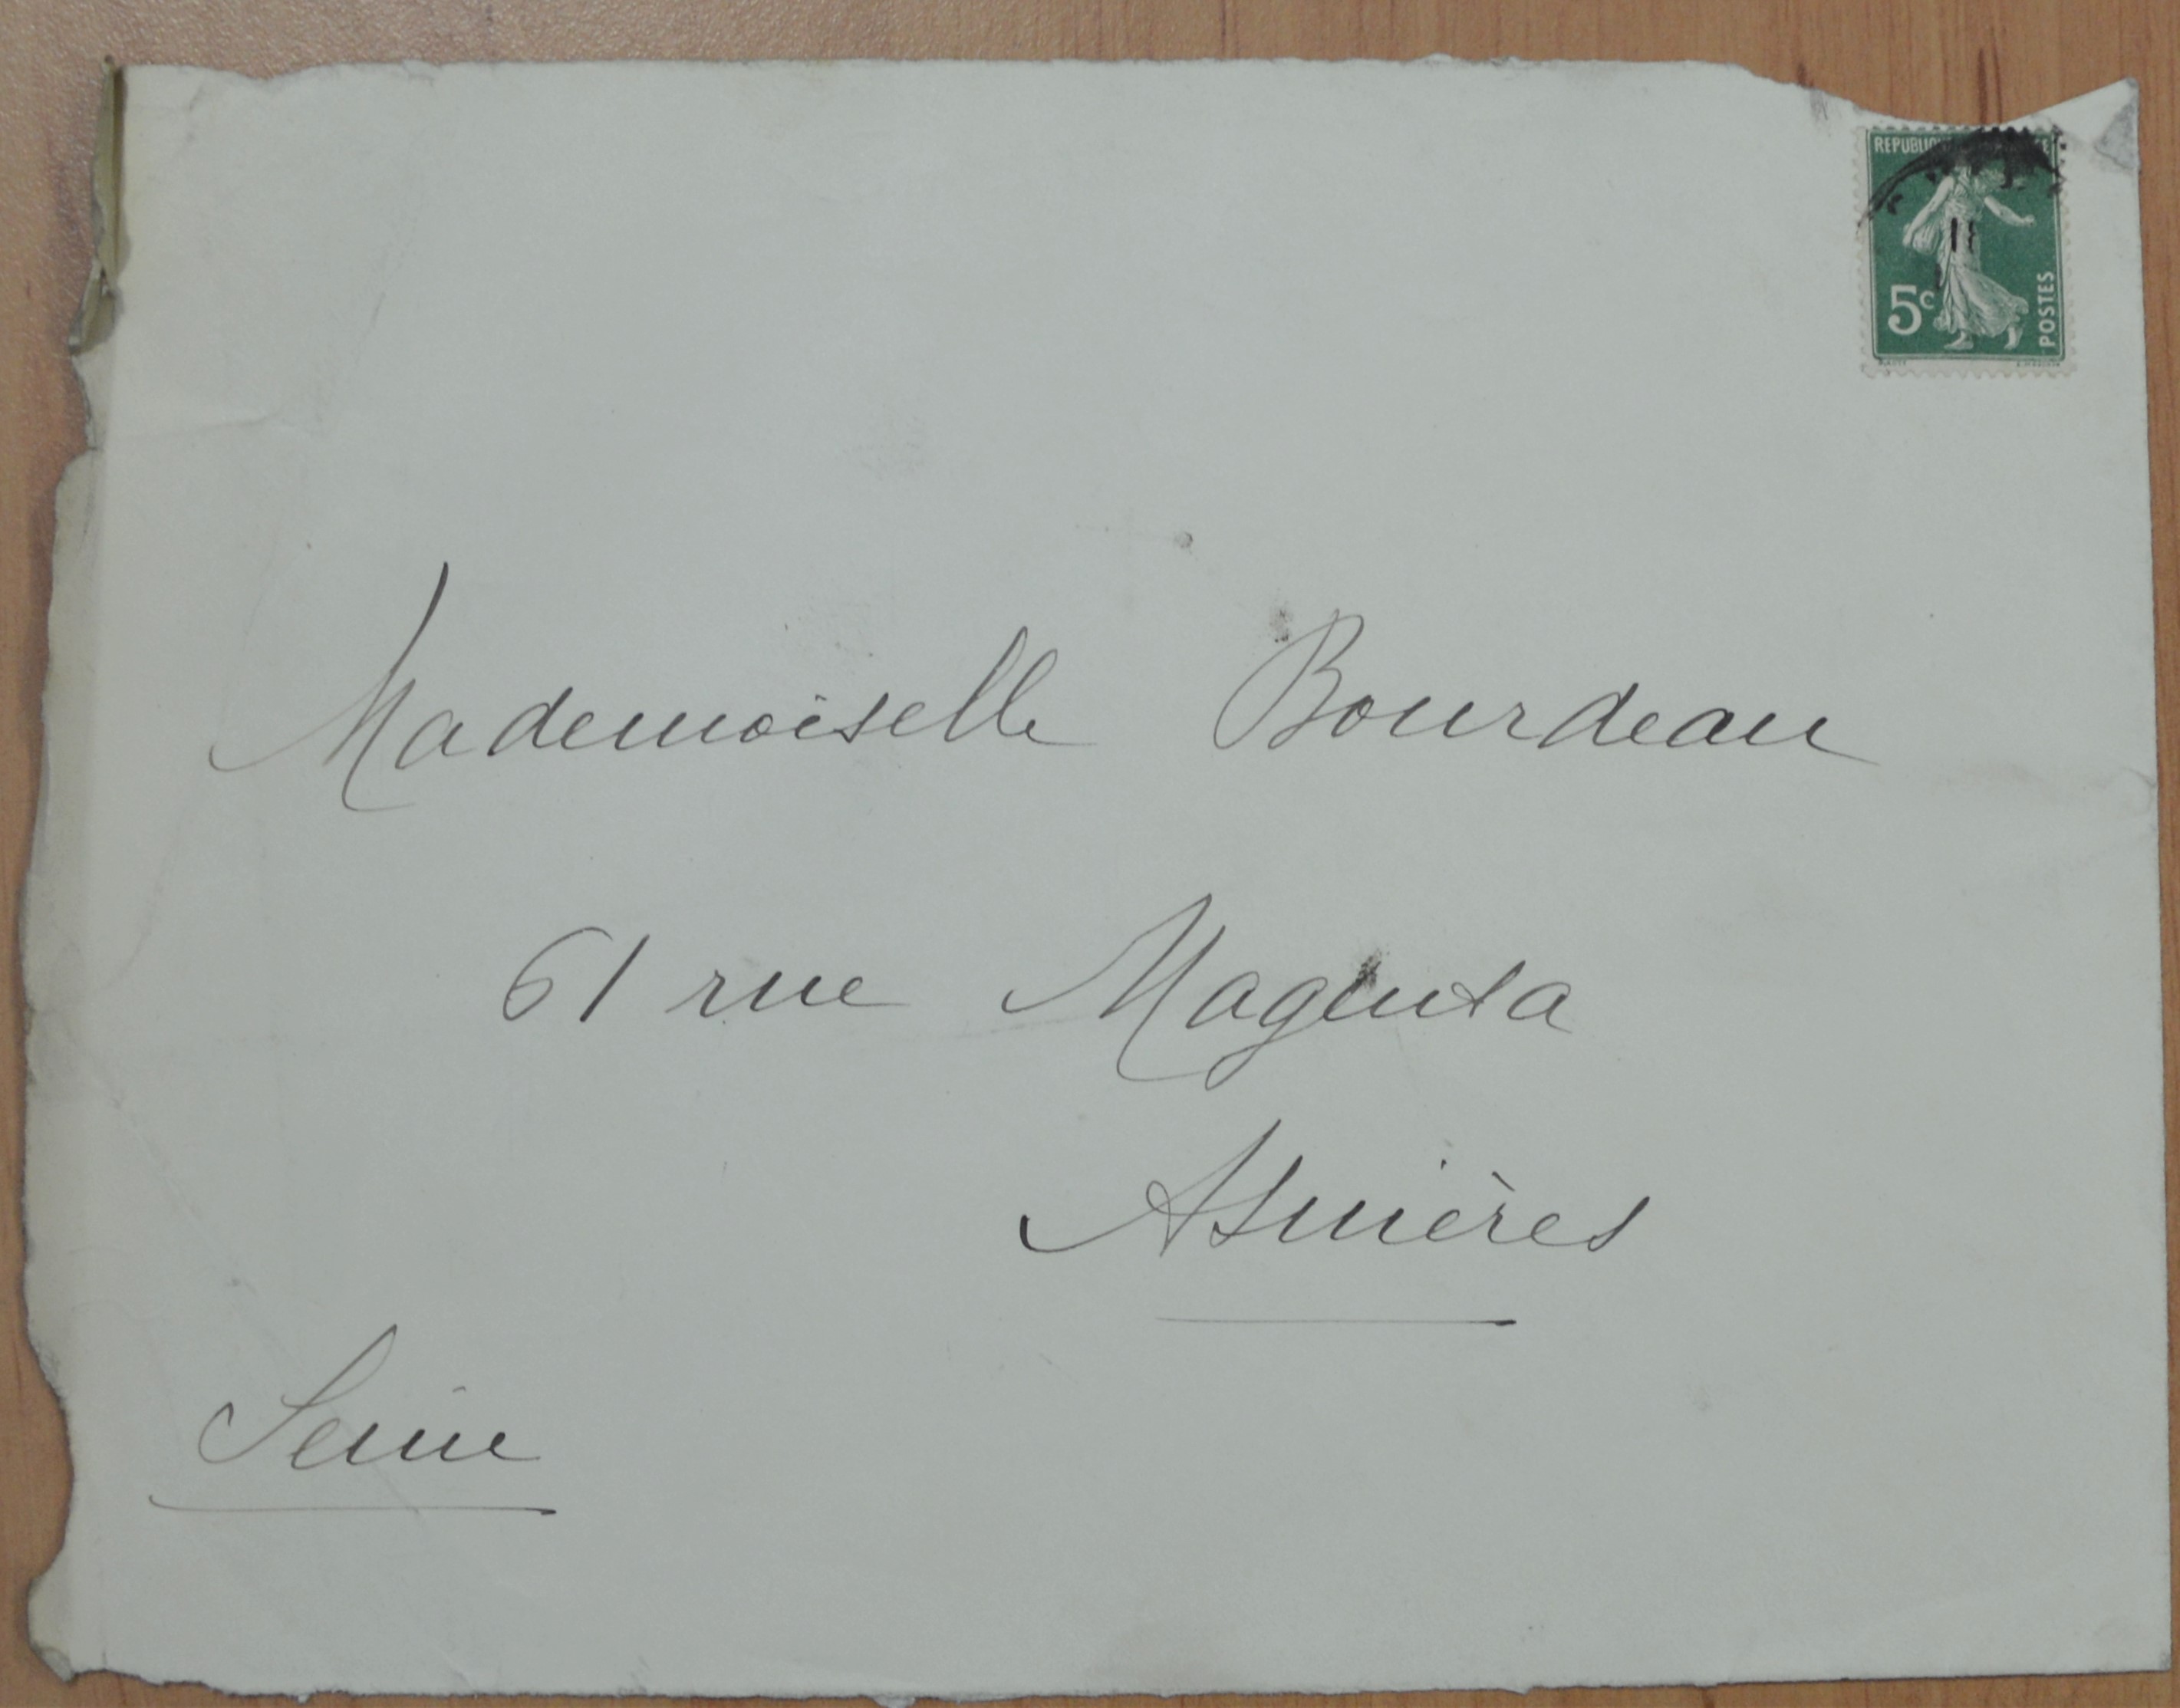 5c
POSTES
Mademoiselle Bourdeau
61 rue Magenta
Asnières
Seine